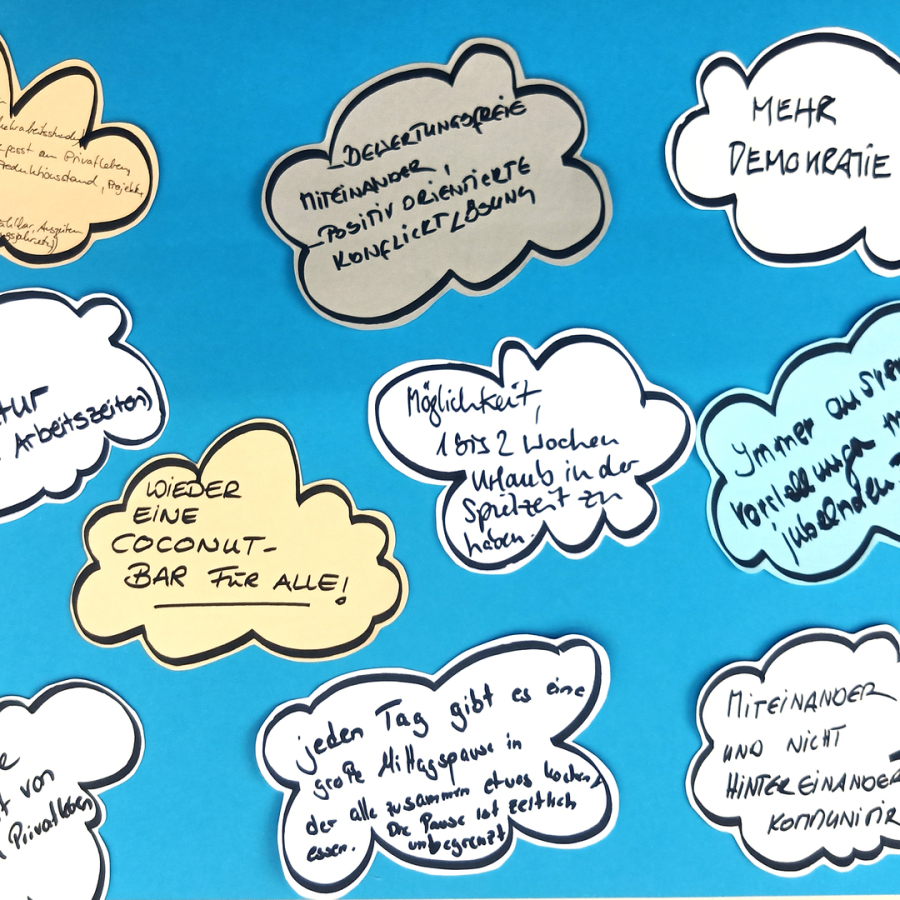 passt am Privatleben
BEWERTUNGSFREIE
MITEINANDER,
POSITIV ORIENTIERTE
KONFLICKTLÖSUNG
MEHR
DEMOKRATIE
Arbeitszeiten)
Möglichkeit,
1 bis 2 Wochen
Urlaub in der
Spielzeit zu
haben.
Immer
Vorstellungen
jubelnden
WIEDER
EINE
COCONUT-
BAR FÜR ALLE!
von
Privatleben
jeden Tag gibt es eine
große Mittagspause in
der alle zusammen etwas kochen/
essen. Die Pause ist zeitlich
unbegrenzt
MITEINANDER
UND NICHT
HINTEREINANDER